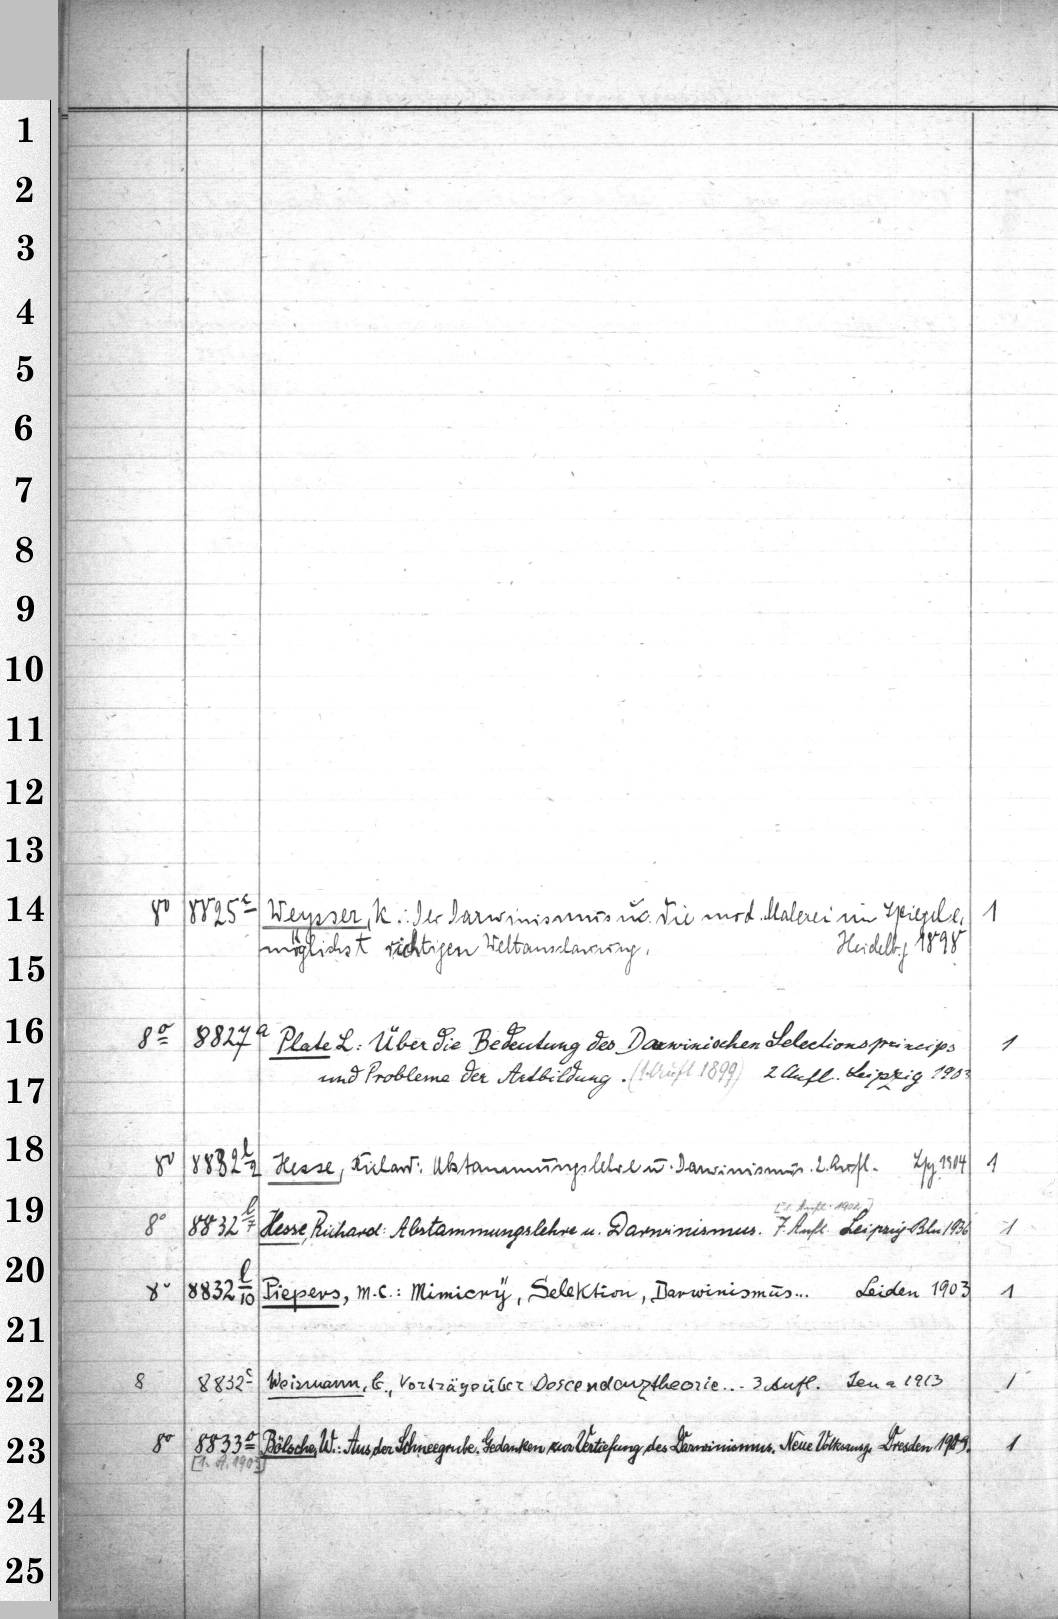 1
2
3
4
5
6
7
8
9
10
11
12
13
14 8º 8825 c Weysser, K.: Der Darwinismus u. die mod. Malerei im Spiegel e. 1
15 möglichst richtigen Weltanschauung. Heidelbg 1898
16 8º 8827 a Plate L: Über die Bedeutung des Darwinischen Selectionsprincips 1
17 und Probleme der Artbildung. (1. Aufl 1899) 2 Aufl. Leipzig 1903
18 8º 8832 l/2 Hesse, Richard: Abstammungslehre u. Darwinismus. 2. Aufl. Lpg. 1904 1
19 8º 8832 l/7 Hesse, Richard: Abstammungslehre u. Darwinismus. 7. Aufl. Leipzig-Bln 1936 1
20 8º 8832 l/10 Piepers, M.C.: Mimicry, Selektion, Darwinismus... Leiden 1903 1
21
22 8 8832 c Weismann, Vorträge über Descendenztheorie... 3 Aufl. Jena 1913 1
23 8º 8833 a Bölsche, W.: Aus der Schneegrube. Gedanken zur Vertiefung des Darwinismus. Neue Volksausg. Dresden 1909. 1
[1. A. 1903]
24
25